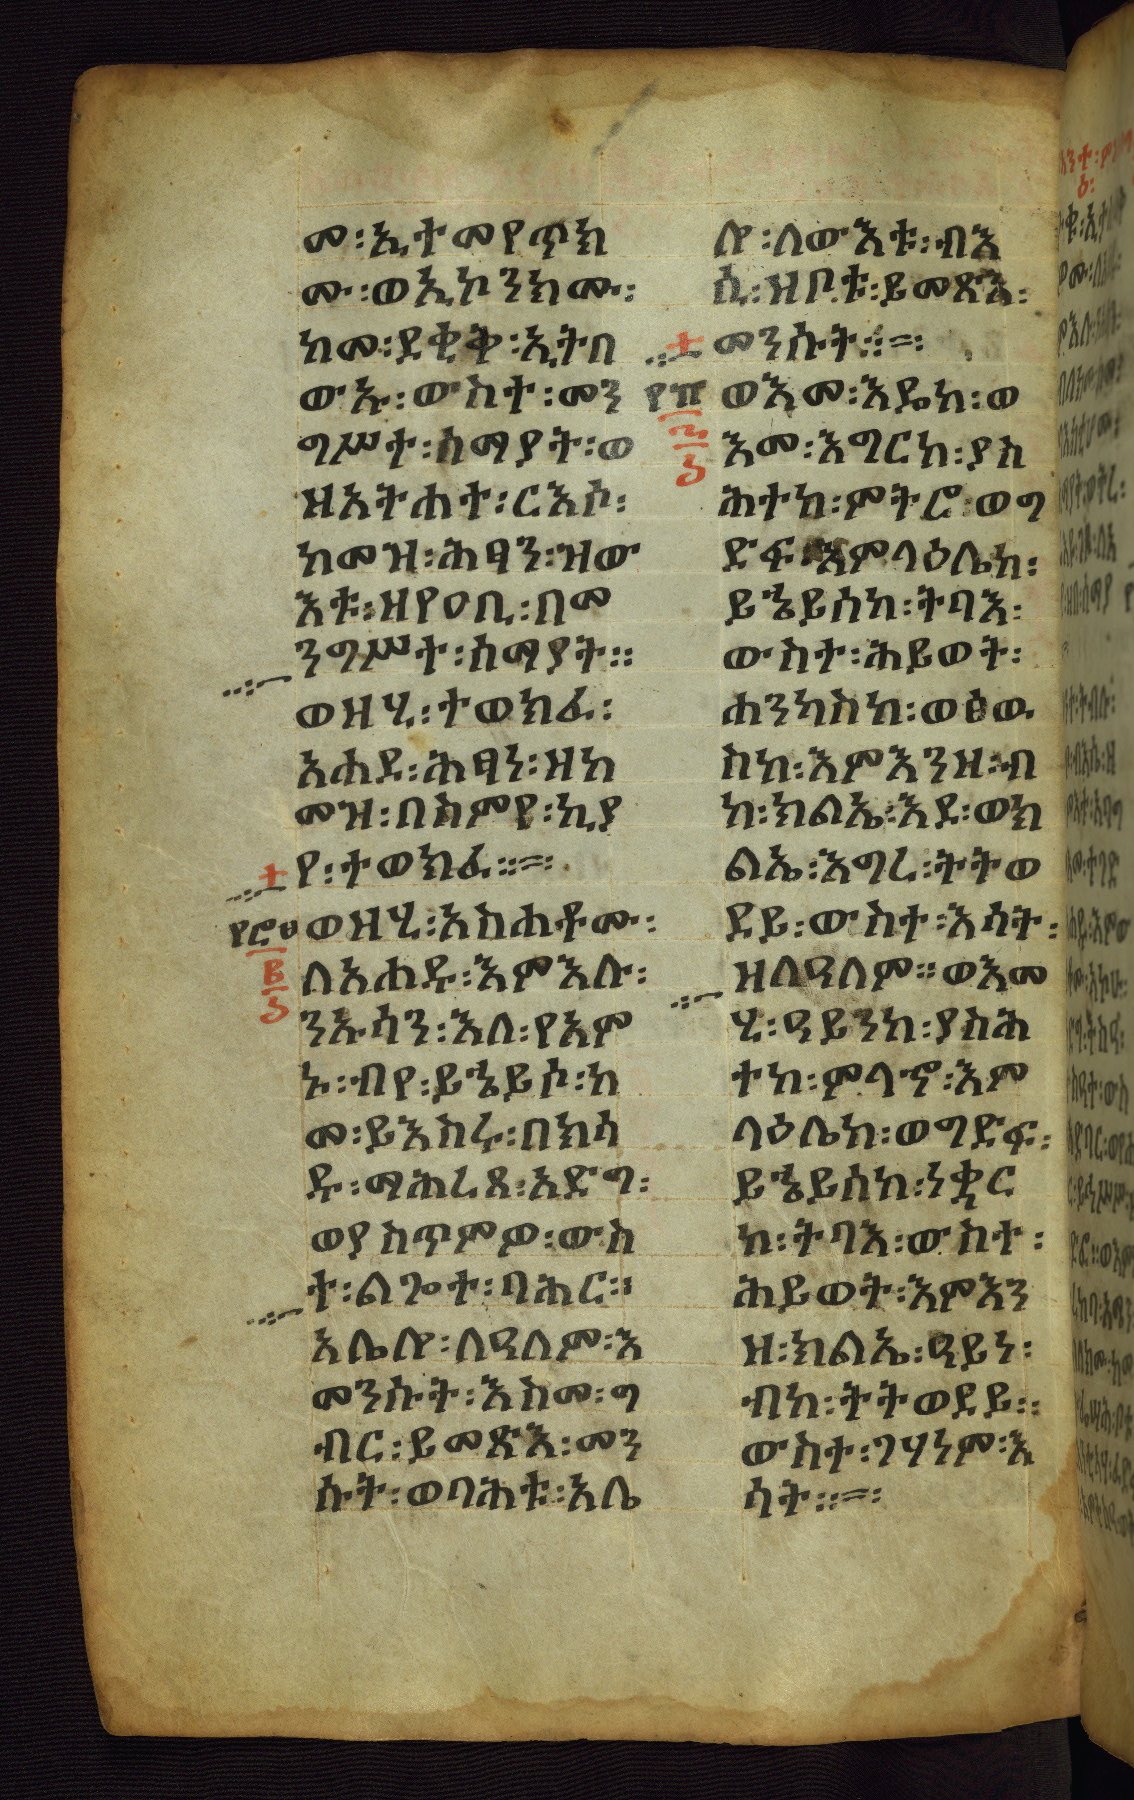 መ፡ኢተመየጥክ
ሙ፡ወኢኮንክሙ፡
ከመ፡ደቂቅ፡ኢትበ
ውኡ፡ውስተ፡መን
ግሥተ፡ሰማያት፡ወ
ዘአትሐተ፡ርእሶ፡
ከመዝ፡ሕፃን፡ዝው
እቱ፡ዘየዐቢ፡በመ
ንግሥተ፡ሰማያት፡፡
ወዘሂ፡ተወክፈ፡
አሐደ፡ሕፃነ፡ዘከ
መዝ፡በስምየ፡ኪያ
የ፡ተወክፈ፡፡=፡
ወዘሂ፡አስሐቶሙ፡
ለአሐዱ፡እምእሉ፡
ንኡሳን፡እለ፡የአም
ኑ፡ብየ፡ይኄይሶ፡ከ
መ፡ይእስሩ፡በክሳ
ዱ፡ማሕረጸ፡አድግ፡
ወያስጥምዎ፡ውስ
ተ፡ልጐተ፡ባሕር፡፡
አሌሎ፡ለዓለም፡እ
መንሱት፡እስመ፡ግ
ብር፡ይመጽእ፡መን
ሱት፡ወባሕቱ፡አሌ
ሎ፡ለውእቱ፡ብእ
ሲ፡ዝቦቱ፡ይመጽእ፡
መንሱት፡፡=፡
ወእመ፡እዴከ፡ወ
እመ፡እግርከ፡ያስ
ሕተከ፡ምትሮ፡ወግ
ድፍ፡እምላዕሌከ፡
ይኄይሰከ፡ትባእ፡
ውስተ፡ሕይወት፡
ሐንካስከ፡ወፅዉ
ስከ፡እምእንዘ፡ብ
ከ፡ክልኤ፡እደ፡ወክ
ልኤ፡እግረ፡ትትወ
ደይ፡ውስተ፡እሳት፡
ዘለዓለም፡፡ወእመ
ሂ፡ዓይንከ፡ያስሕ
ተከ፡ምላኆ፡እም
ላዕሌከ፡ወግድፍ፡
ይኄይሰከ፡ነቋር
ከ፡ትባእ፡ውስተ፡
ሕይወት፡እምእን
ዘ፡ክልኤ፡ዓይነ፡
ብከ፡ትትወደይ፡፡
ውስተ፡ገሃነም፡እ
ሳት፡፡=፡